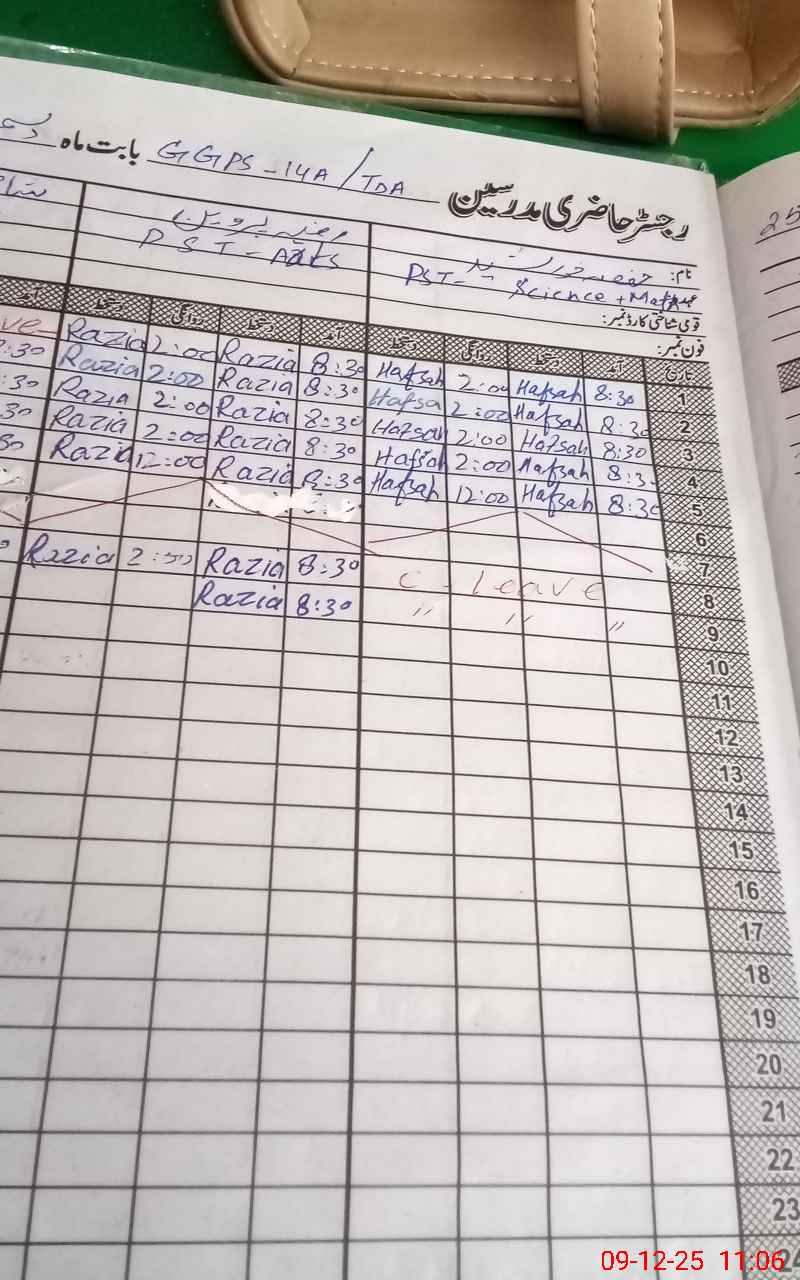 رجسٹر حاضری مدرسین GGPS-14A/TDA بابت ماہ
25
نام:
PST- Science + Math
PST-Arts
قومی شناختی کارڈ نمبر:
فون نمبر:
تاریخ آمد دستخط روانگی دستخط آمد دستخط روانگی دستخط آمد
1 8:30 Hafsah 2:00 Hafsah 8:30 Razia 2:00 Razia
2 8:30 Hafsah 2:00 Hafsa 8:30 Razia 2:00 Razia
3 8:30 Hafsah 2:00 Hafsah 8:30 Razia 2:00 Razia
4 8:3 Hafsah 2:00 Hafsah 8:30 Razia 2:00 Razia
5 8:30 Hafsah 12:00 Hafsah 8:30 Razia 12:00 Razia
6
7
8 C-Leave 8:30 Razia 2:00 Razia
9 " " " 8:30 Razia
10
11
12
13
14
15
16
17
18
19
20
21
22
23
24
09-12-25 11:06